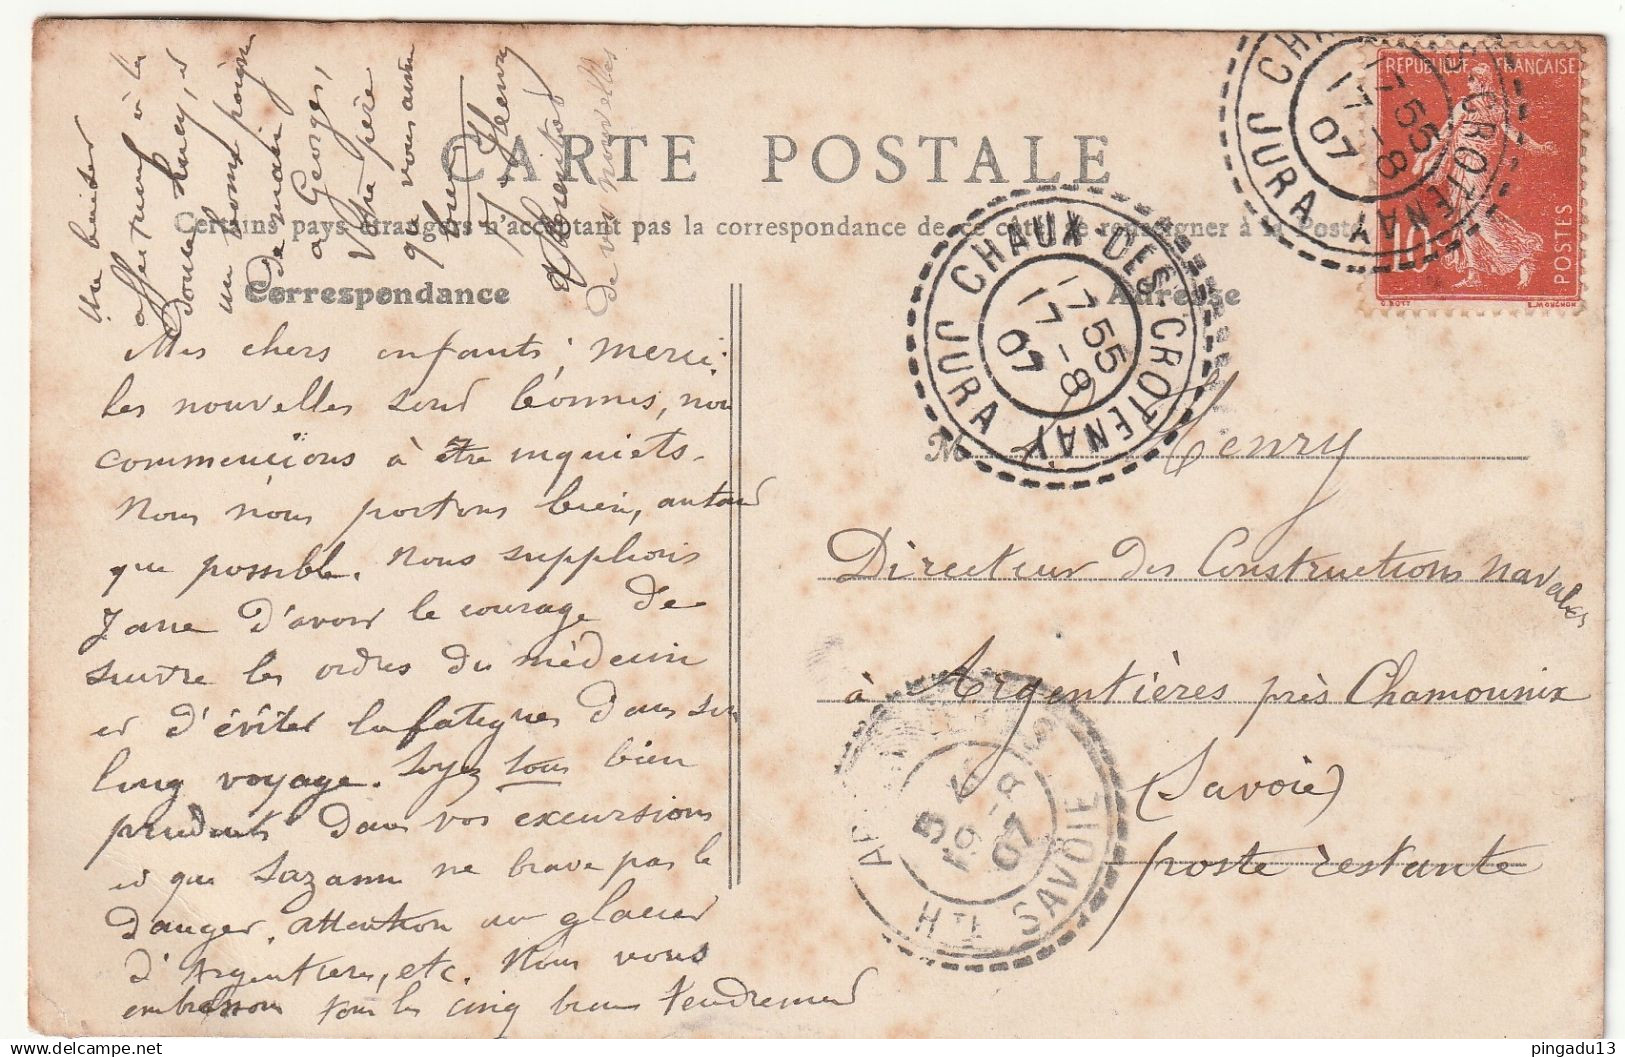 CARTE POSTALE
Certains pays étrangers n'acceptant pas la correspondance de ce côté, se renseigner à la Poste
Correspondance
Adresse
Mes chers enfants, merci.
les nouvelles sont bonnes, nous
commencions à être inquiets.
Nous nous portons bien, autant
que possible. Nous supplions
Jane d'avoir le courage de
suivre les ordres du médecin
et d'éviter la fatigue dans son
long voyage. Soyez tous bien
prudents dans vos excursions
et que Sazanne ne brave pas le
danger. Attention au glacier
d'Argentières, etc. Nous vous
embrassons tous les cinq bien tendrement
Un baiser
affectueux à la
douce Lucy, et
un bonne poignée
de main
à Georges,
Votre père
qui vous aime
tous
Henry
de vos nouvelles
M. Henry
Directeur des Constructions navales
à Argentières près Chamounix
(Savoie)
poste restante
REPUBLIQUE FRANÇAISE
10c
POSTES
O.ROTY
E.MOUCHON
CHAUX-DES-CROTENAY
17 55
17 - 8
07
JURA
CHAUX-DES-CROTENAY
17 55
17 - 8
07
JURA
19 - 8
07
HTE SAVOIE
pingadu13